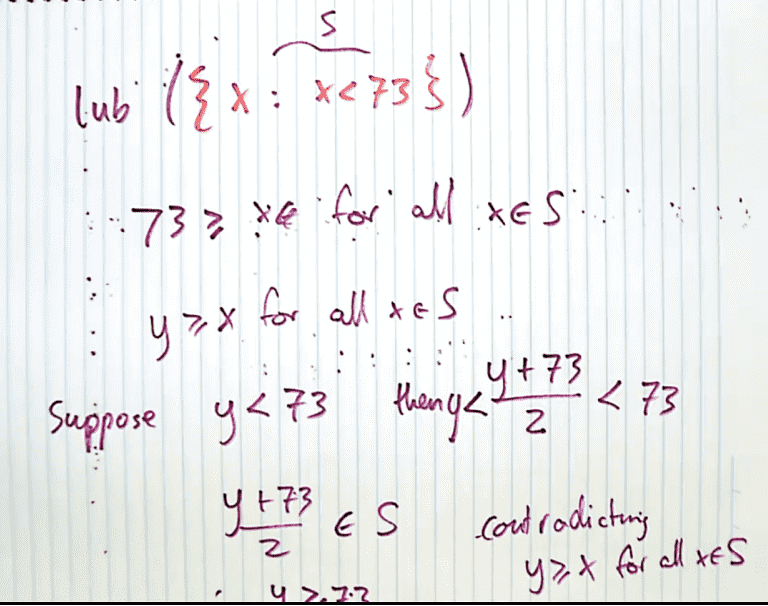 S
lub ({x : x<73})
73 ⩾ x for all x∈S
y ⩾ x for all x∈S
Suppose y < 73 then y< (y+73)/2 < 73
(y+73)/2 ∈ S contradicting
y⩾x for all x∈S
y ⩾ 73